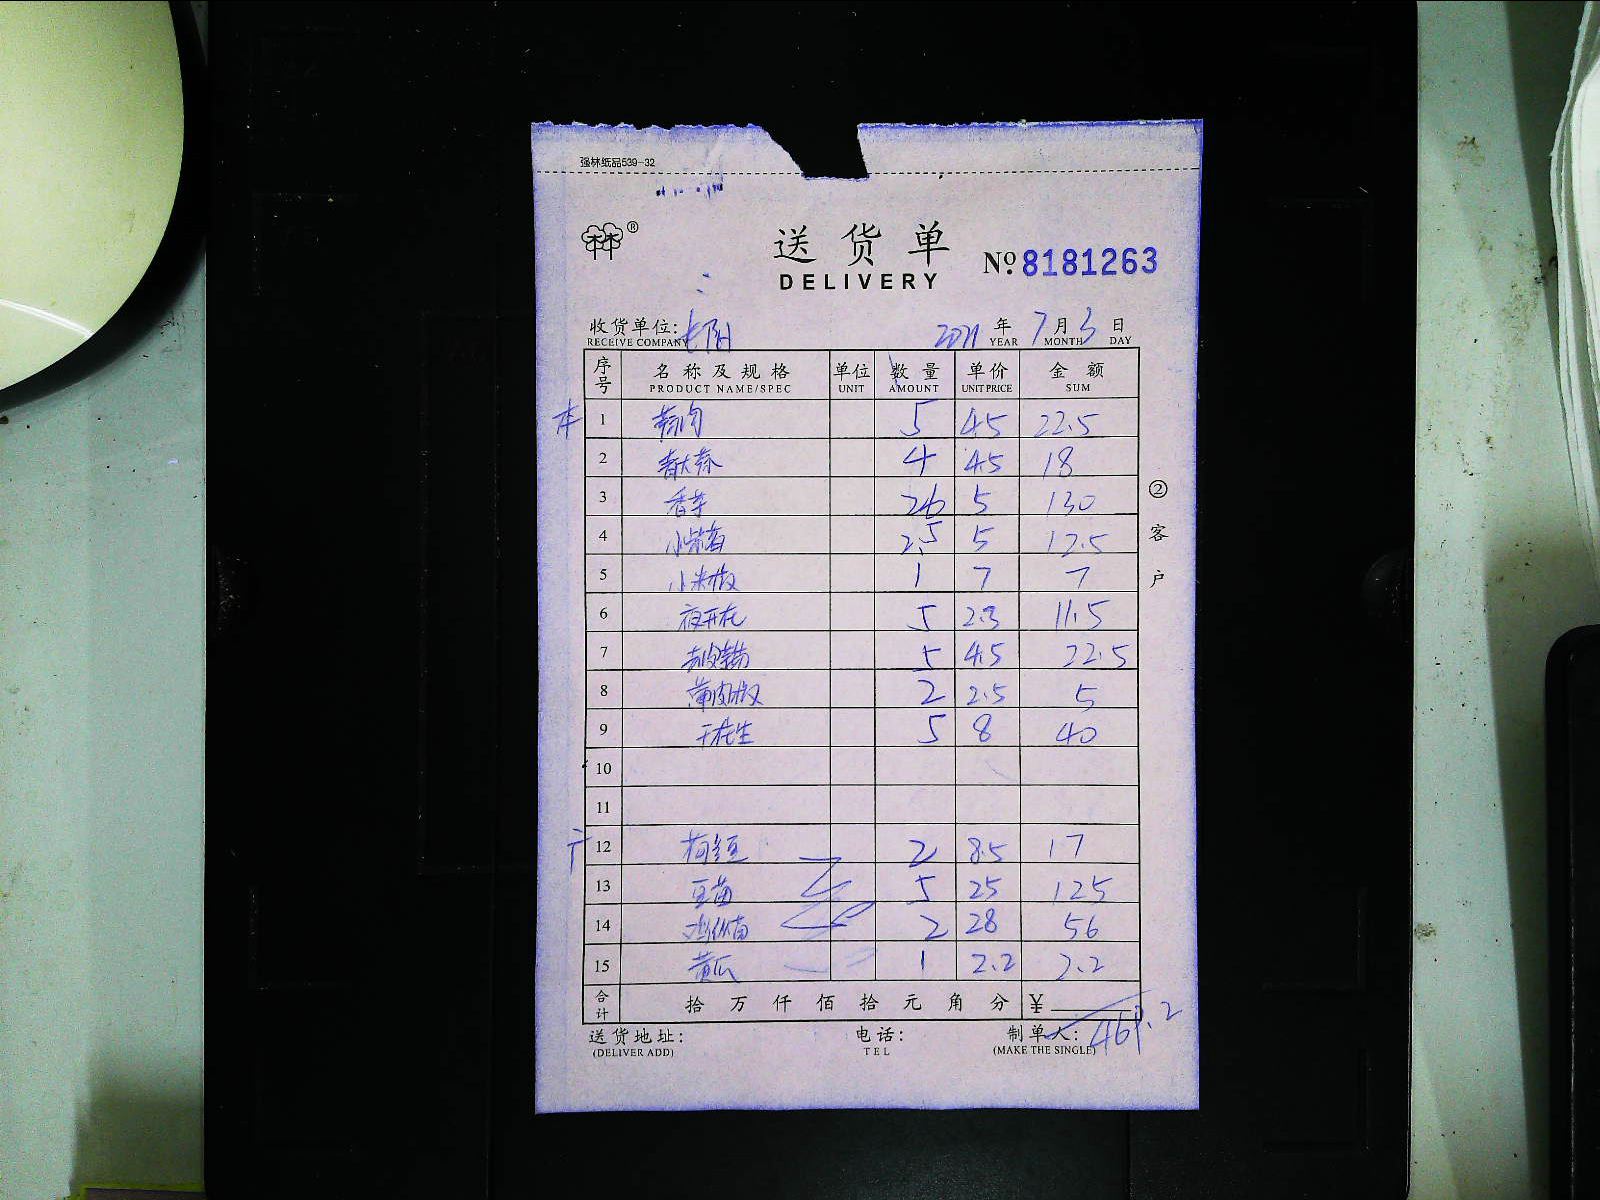 强林纸品539-32
送货单
DELIVERY
№ 8181263
收货单位: 2021年7月3日
RECEIVE COMPANY YEAR MONTH DAY
序号 名称及规格 单位 数量 单价 金额
PRODUCT NAME/SPEC UNIT AMOUNT UNIT PRICE SUM
本 1 5 4.5 22.5
2 4 4.5 18
3 香芋 26 5 130
4 2.5 5 12.5
5 小米椒 1 7 7
6 夜开花 5 2.3 11.5
7 5 4.5 22.5
8 薄皮椒 2 2.5 5
9 干花生 5 8 40
10
11
12 2 8.5 17
13 豆苗 5 25 125
14 2 28 56
15 黄瓜 1 2.2 2.2
合计 拾万仟佰拾元角分 ¥ 469.2
送货地址: 电话: 制单人:
(DELIVER ADD) TEL (MAKE THE SINGLE)
② 客户